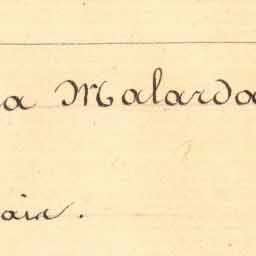 a Malarda
air.